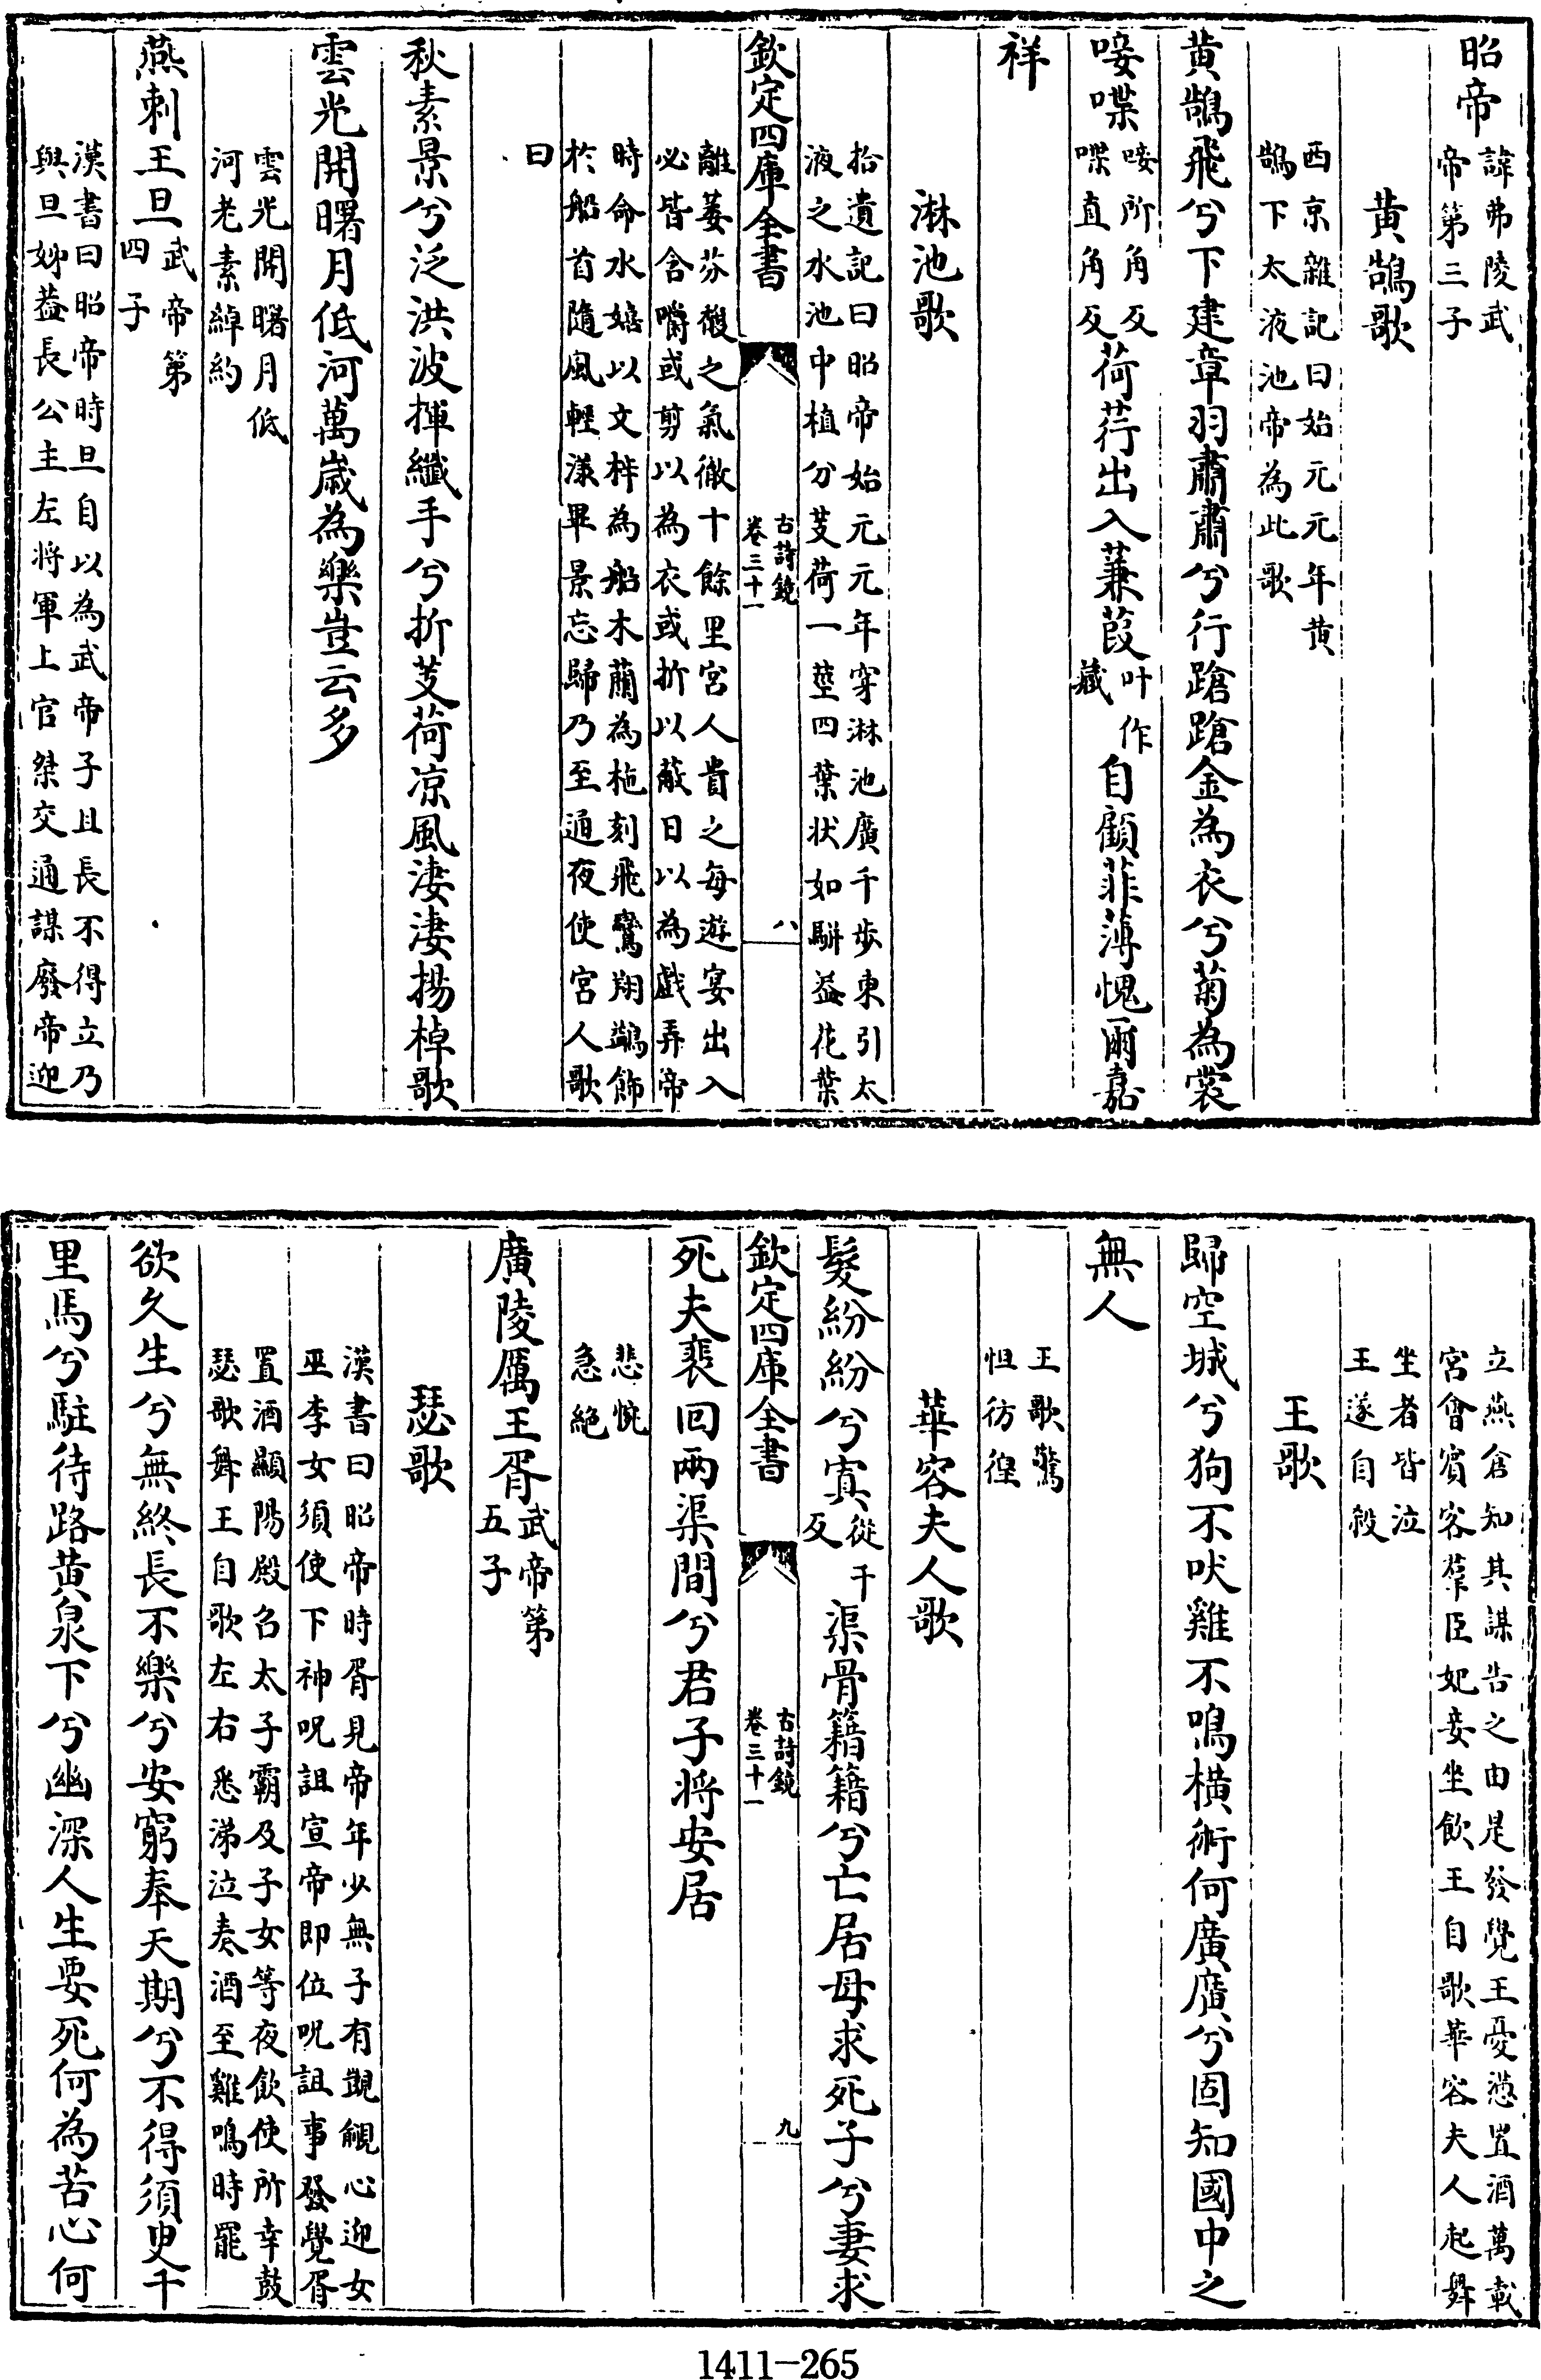 昭帝諱弗陵武帝第三子
黄鵠歌
西京雜記曰始元元年黄鵠下太液池帝為此歌
黄鵠飛兮下建章羽肅肅兮行蹌蹌金為衣兮菊為裳
唼喋唼所角反喋直角反荷荇出入蒹葭叶作藏自顧菲薄愧爾嘉
祥
淋池歌
拾遺記曰昭帝始元元年穿淋池廣千歩東引太液之水池中植分芰荷一莖四葉状如駢葢花葉
欽定四庫全書
古詩鏡卷三十一
八
離萎芬馥之氣徹十餘里宫人貴之每遊宴出入必皆含嚼或剪以為衣或折以蔽日以為戲弄帝
時命水嬉以文梓為船木蘭為柂刻飛鸞翔鷁飾於船首隨風輕漾畢景忘歸乃至通夜使宫人歌
曰
秋素景兮泛洪波揮纖手兮折芰荷凉風淒淒揚棹歌
雲光開曙月低河萬歲為樂豈云多
雲光開曙月低河老素綽約
燕剌王旦武帝第四子
漢書曰昭帝時旦自以為武帝子且長不得立乃與旦姊葢長公主左将軍上官桀交通謀廢帝迎
立燕倉知其謀告之由是發覺王憂懣置酒萬載宫會賔客羣臣妃妾坐飲王自歌華容夫人起舞
坐者皆泣王遂自殺
王歌
歸空城兮狗不吠雞不鳴横術何廣廣兮固知國中之
無人
王歌驚怛彷徨
華容夫人歌
髮紛紛兮寘從千反渠骨籍籍兮亡居母求死子兮妻求
欽定四庫全書
古詩鏡卷三十一
九
死夫裴回兩渠間兮君子将安居
悲惋急絶
廣陵厲王胥武帝第五子
瑟歌
漢書曰昭帝時胥見帝年少無子有覬覦心迎女巫李女須使下神呪詛宣帝即位呪詛事發覺胥
置酒顯陽殿召太子霸及子女等夜飲使所幸鼓瑟歌舞王自歌左右悉涕泣奏酒至雞鳴時罷
欲久生兮無終長不樂兮安窮奉天期兮不得須臾千
里馬兮駐待路黄泉下兮幽深人生要死何為苦心何
1411-265